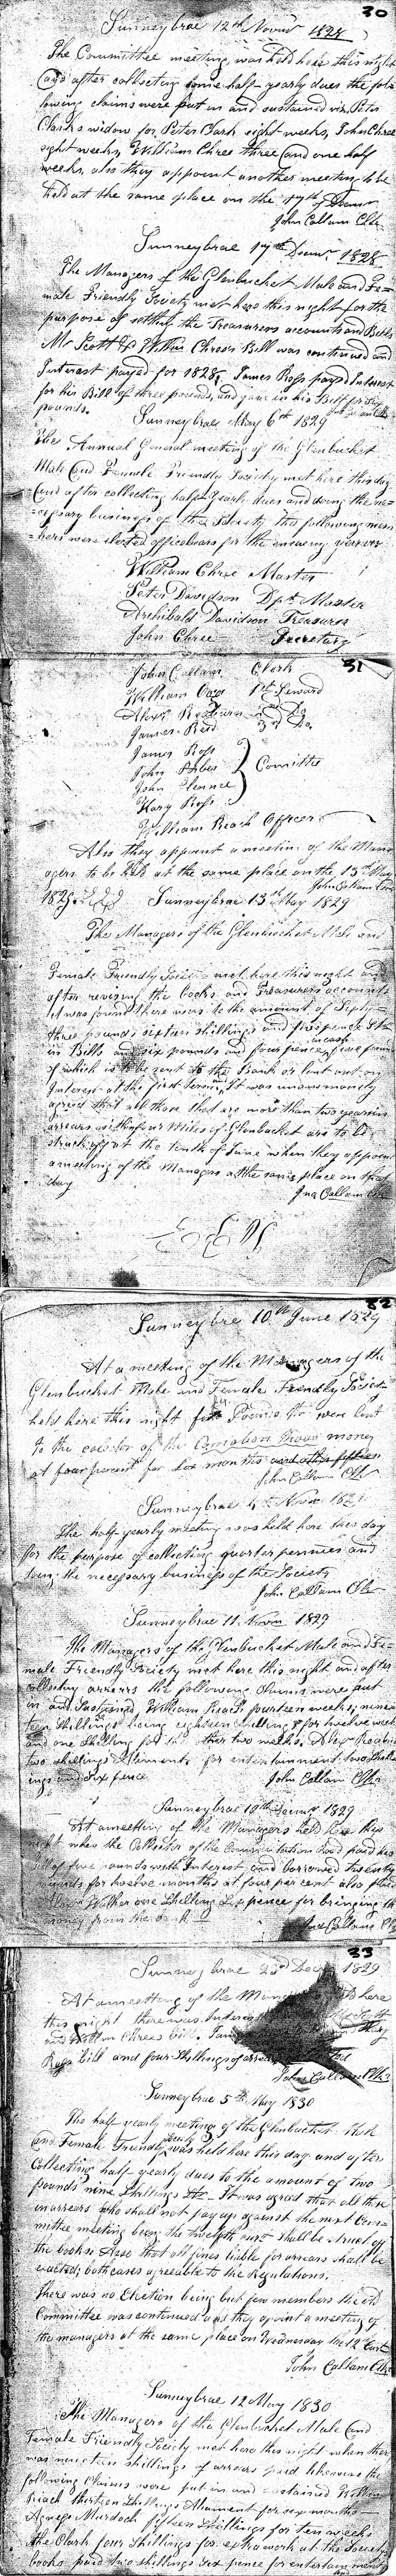 30
Sunneybrae 12th Novmr 1828
The Committee meeting was held here this night
and after collecting some half-yearly dues the fol-
lowing claims were put in and sustained viz. Peter
Clarks widow for Peter Clark eight weeks, John Chree
eight weeks, William Chree three and one half
weeks, also they appoint another meeting to be
held at the same place on the 17th of Decmr
John Callam Clk
Sunneybrae 17th Decmr 1828
The Managers of the Glenbucket Male and Fe=
male Friendly Society met here this night for the
purpose of settling the Treasurers accounts and Bills
Mr Scott & William Chrees Bill was continued and
Interest payed for 1828, James Ross payed Interest
for his Bill of three pounds, and gave in his Bill for
pounds.
Sunneybrae May 6th 1829
The Annual General meeting of the Glenbucket
Male and Female Friendly Society met here this day
and after collecting half-yearly dues and doing the ne=
=cessary business of the Society the following mem
=bers were elected officebears for the ensuing year
William Chree Master
Peter Davidson Dpt Master
Archibald Davidson Treasurer
John Chree Secretary
31
John Callam Clerk
William 1st Steward
Alexr 2nd Do
James Reid 3rd Do
James Ross
John Forbes
John
Harry Ross
Comittee
William Riach Officer
Also they appoint a meeting of the Mana
agers to be held at the same place on the 13th May
1829. John Callam
Sunneybrae 13th May 1829
The Managers of the Glenbucket Male and
Female Friendly Society met here this night and
after revising the books and Treasurers accounts
it was found there was to the amount of Sevty=
three pounds sixteen shillings and five pence Str
in Bills and six pounds and four pence in cash, five pounds
of which is to be sent to the Bank or lent out on
Interest at the first term, It was unanimously
agreed that all those that are more than two years in
arrears within four Miles of Glenbucket are to be
struck off at the tenth of June when they appoint
a meeting of the Managers at the same place on that
day
Jno Callam Clk
32
Sunneybrae 10th June 1829
At a meeting of the Managers of the
Glenbucket Male and Female Friendly Society
held here this night Pounds Str were lent
to the colector of the Road money
at four percent for six months
John Callam Clk
Sunneybrae 4th Novr 1829
The half-yearly meeting was held here this day
for the purpose of collecting quarter pennies and
doing the necessary business of the Society
John Callam Clk
Sunneybrae 11 Novr 1829
The Managers of the Glenbucket Male and Fe=
male Friendly Society met here this night and after
collecting arrears the following Claims were put
in and Sustained, William Riach fourteen weeks, nine
teen Shillings being eighteen Shillings for twelve weeks
and one Shilling for the other two weeks. Alexr
two shillings Aliment, for entertainment two Shill
ings and Six pence
John Callam Clk
Sunneybrae 10th Decmr 1829
At a meeting of the Managers held here this
night when the Collector of the Road paid his
Bill of five pounds with Interest, and borrowed twenty
pounds for twelve months at four per cent also paid
Walker one Shilling Six pence for bringing the
money from the bank
Jno Callam Clk
33
Sunneybrae 23rd Decr 1829
At a meeting of the Managers held here
this night there was Interest
and William Chrees bill.
Ross bill and four Shillings of arrears
John Callam Clk
Sunneybrae 5th May 1830
The half yearly meeting of the Glenbucket Male
and Female Friendly Society was held here this day and after
Collecting half-yearly dues to the amount of two
pounds nine Shillings Str. It was agreed that all those
in arrears who shall not pay up against the next Com=
mittee meeting being the twelfth inst shall be struck off
the books. Also that all fines liable for arrears shall be
exacted; both cases agreeable to the Regulations.
There was no Election being but few members the old
Committee was continued and they apoint a meeting of
the managers at the same place on Wednesday the 12 Curt
John Callam Clk
Sunneybrae 12 May 1830
The Managers of the Glenbucket Male and
Female Friendly Society met here this night when there
was nineteen shillings of arrears paid likewise the
following Claims were put in and sustained William
Riach thirteen Shillings Aliment for six months
Agness Murdoch fifteen Shillings for ten weeks
the Clark four Shillings for extra work at the Society
books paid two shillings Six pence for entertainment